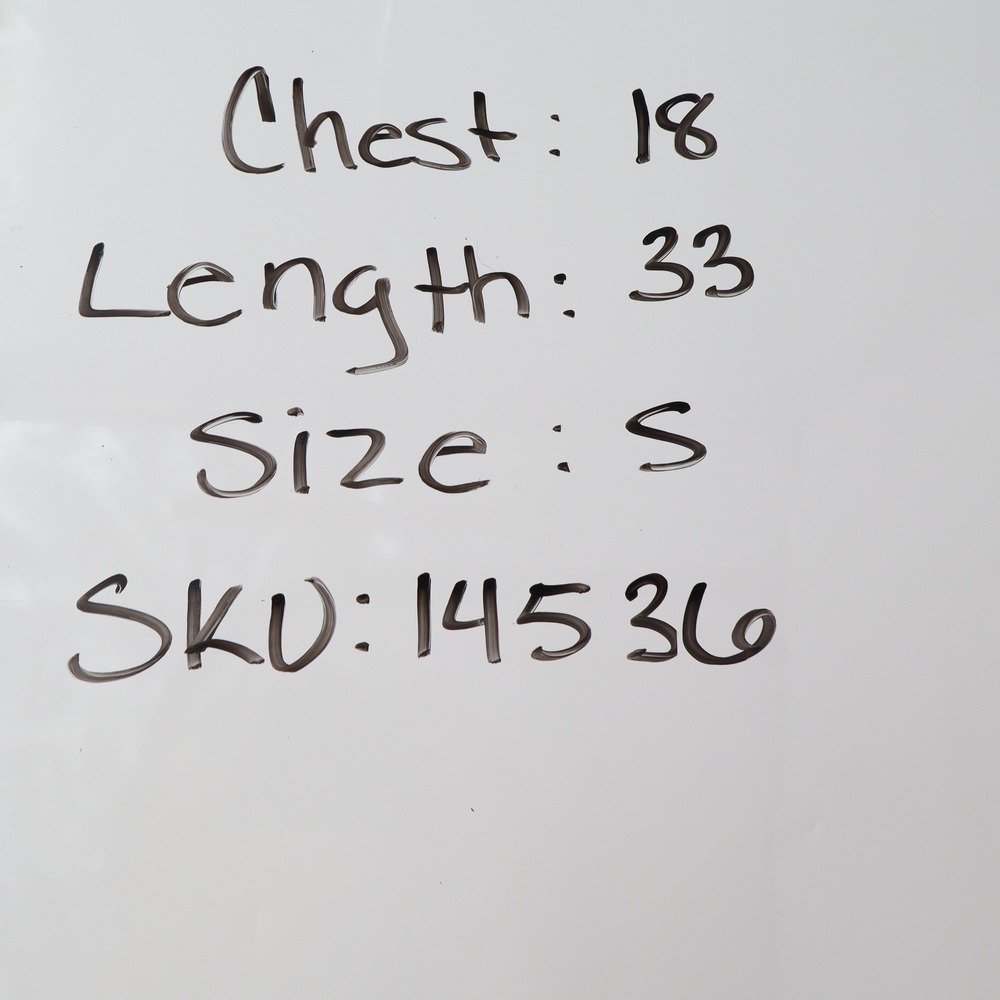 Chest: 18
Length: 33
Size: S
SKU: 14536